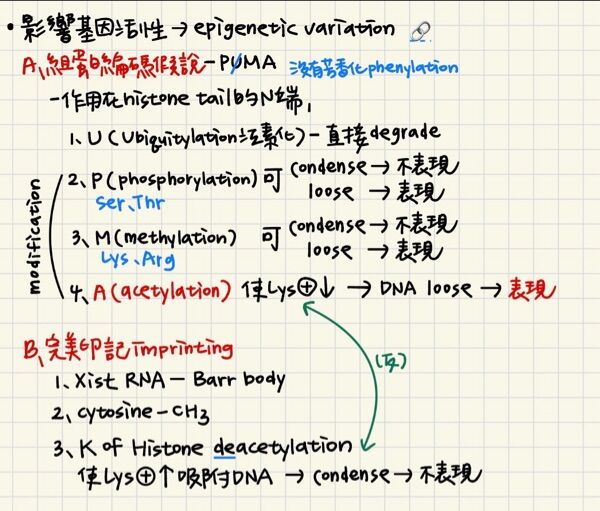 • 影響基因活性 → epigenetic variation
A、組蛋白編碼假說 - PUMA 沒有苯香化phenylation
- 作用在histone tail的N端,
1、U (Ubiquitylation 泛素化) - 直接degrade
2、P (phosphorylation) 可 condense → 不表現
loose → 表現
Ser、Thr
3、M (methylation) 可 condense → 不表現
loose → 表現
Lys、Arg
4、A (acetylation) 使Lys⊕↓ → DNA loose → 表現
modification
(反)
B、完美印記imprinting
1、Xist RNA - Barr body
2、cytosine-CH₃
3、K of Histone deacetylation
使Lys⊕↑吸附DNA → condense → 不表現